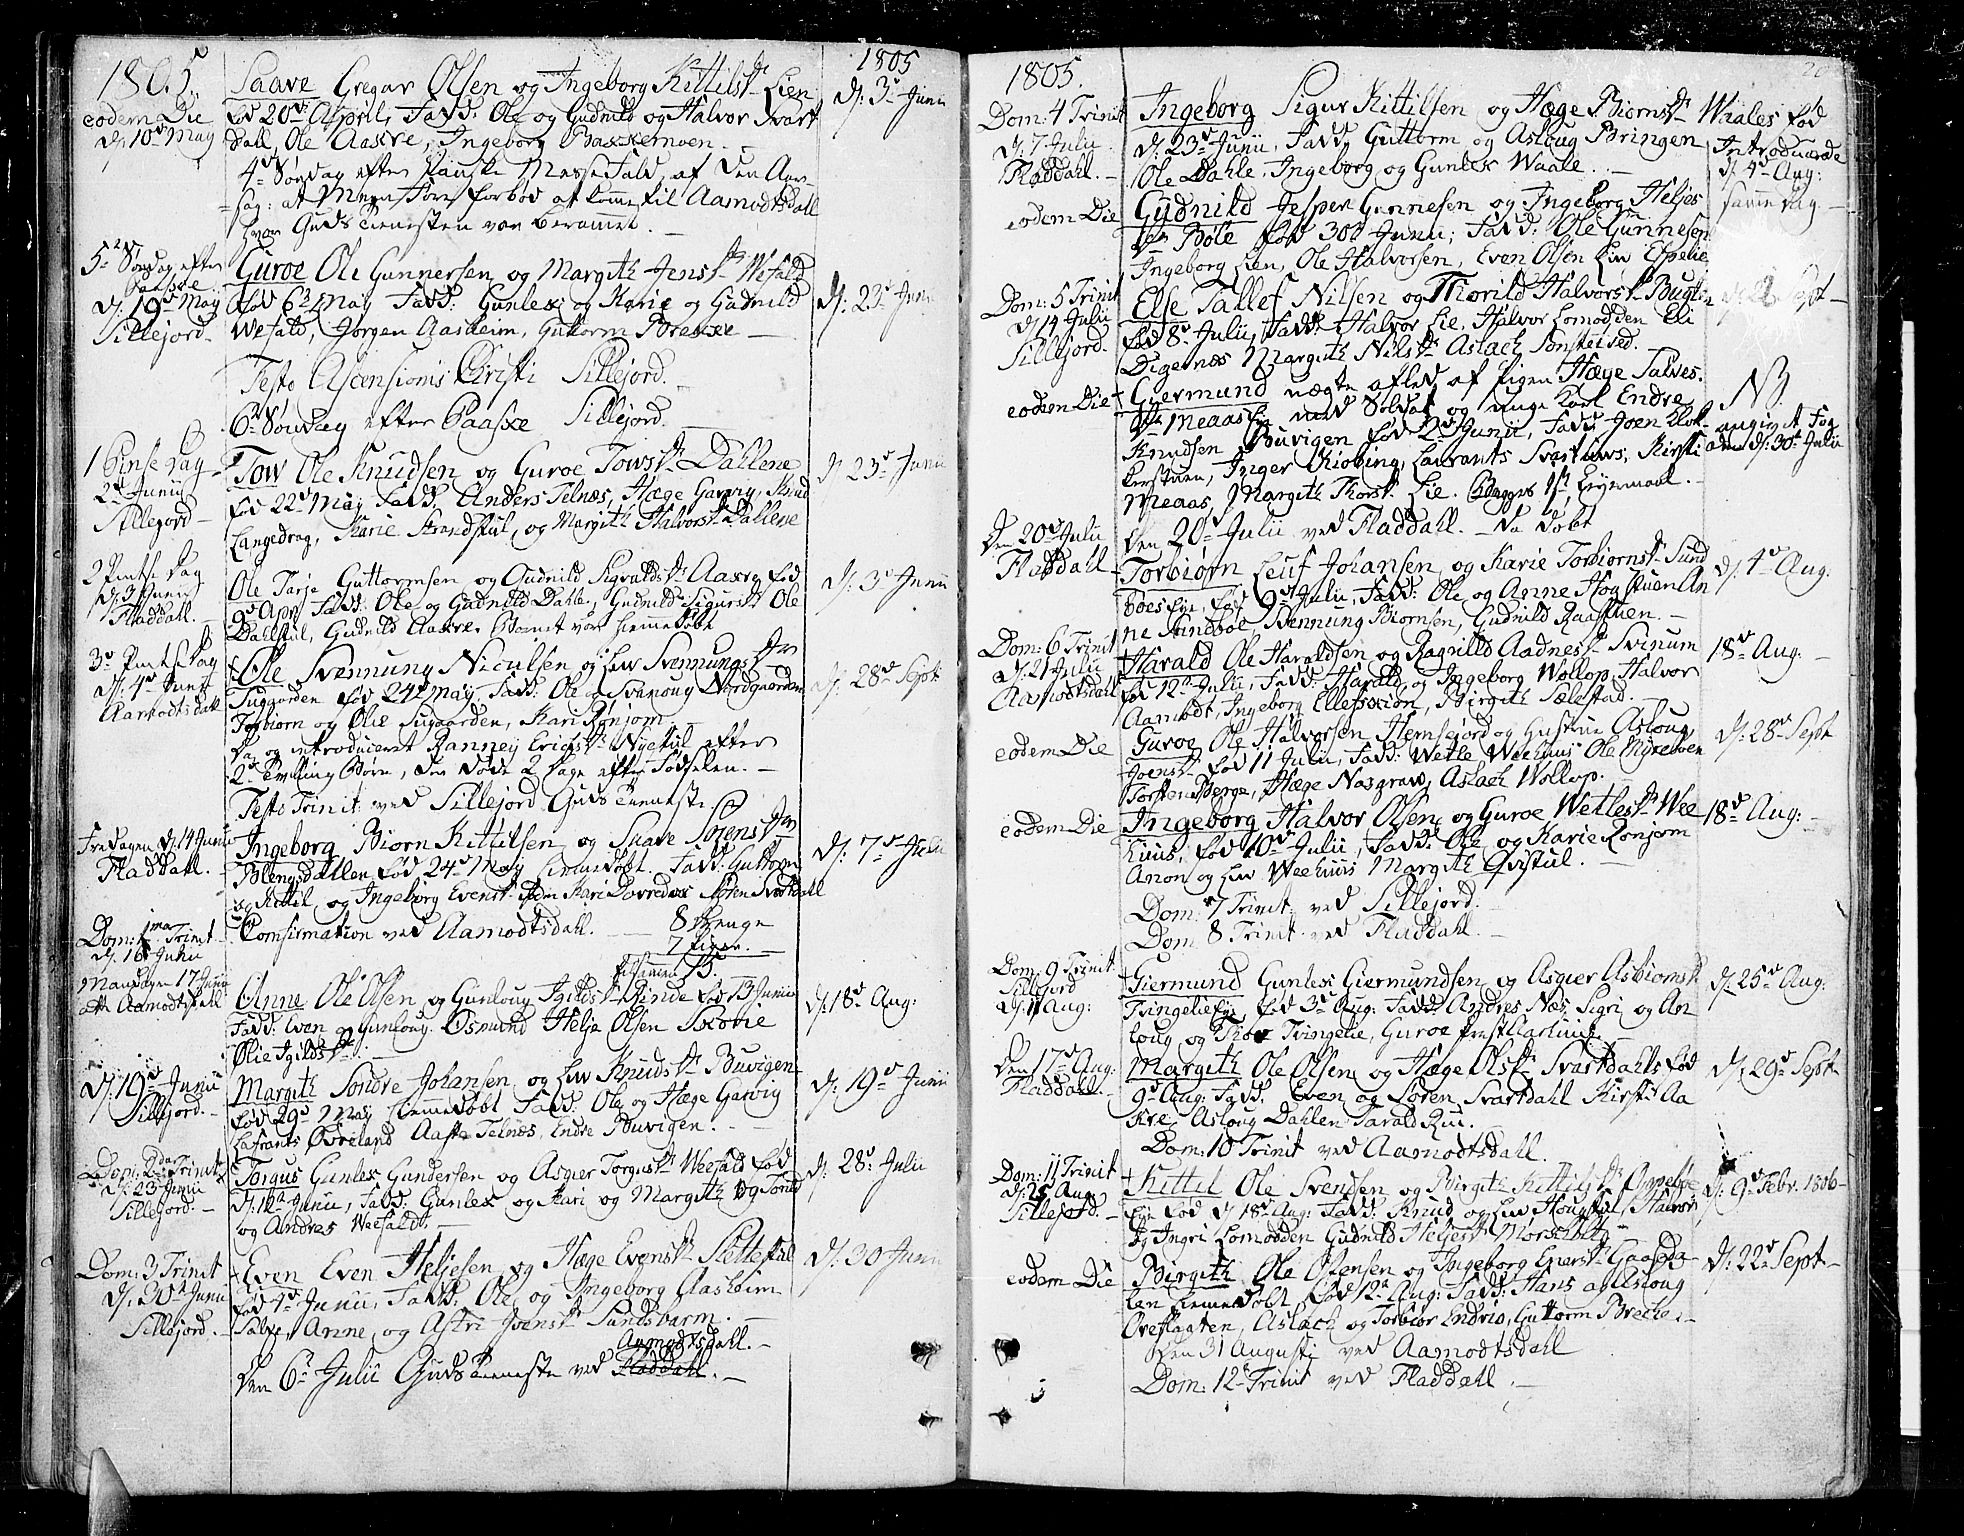 1805.
1805
eodem Die
d: 10de May
Saave Gregar Olsen og Ingeborg Kittilsdr Lien
fød 20de Apriil, Fadd: Ole og Gudnild og Halvor Svart
dall, Ole Aasne, Ingeborg Bakkemoen.
d: 3de Junii
4de Søndag efter Paaske Messefald, af den Aar-
sag: at Meen Føre forbød at komme til Aamodtsdall
hvor Guds Tienesten var berammet.
5te Søndag efter
Paaske
d: 19de May
Sillejord
Guroe Ole Gunnersen og Margith Jensdr Wefald
fød 6te May Fadd: Gunlex og Karie og Gudnild
Wefald, Jørgen Aasheim, Guttorm Brekke
d: 23de Junii
Festo Ascensionis Christi Sillejord.
6te Søndag efter Paaske Sillejord.
1 Pinse Dag
2de Junii
Sillejord
Tow Ole Knudsen og Guroe Towsdr Dahlene
fød 22de May Fadd: Anders Telnæs, Hæge Garvig, Knud
Langedrag, Karie Strandstul, og Margith Halvorsdr Dahlene
d: 23de Junii
2 Pintse Dag
d: 3de Junii
Fladdahl.
Ole Tarje Guttormsen og Gudnild Sigvaldsdr Aasne fød
9de Apr. Fadd: Ole og Gudnild Dahle, Gudnild Sigursdr Ole
Dahlstul, Gudnild Aasne. Barnet var hiemmedøbt
d: 3de Junii
3de Pintse Dag
d: 4de Junii
Aamodtsdall
Ole Svennung Niculsen og Liv Svennungsdr
Suggarden fød 24de May Fadd: Ole og Svanoug Nordgaarden
Torbiørn og Ølie Suggarden, Kari Rønjom
d: 28de Sept:
Dag introduceret Ranney Erichsdr Nystul efter
2de Tvilling Børn, der døde 2 Dage efter Fødselen.
Festo Trinit: ved Sillejord Guds Tieneste
Fredagen d: 14 Junii
Fladdahl.
Ingeborg Biørn Kittilsen og Saave Sørensdr
Blengsdallen fød 24de May hiemmedøbt. Fadd: Guttorm
og Kittil og Ingeborg Evensdr Kari Dovrednæs Søfen Svartdall
d: 7de Julii
Dom: 1ma Trinit
d: 16 Junii
Confirmation ved Aamodtsdahl. 8 Drenge
7 Piger.
tilsammen 15.
Mandagen 17 Junii
ved Aamodtsdall
Anne Ole Olsen og Gunloug Igildsdr Rinde fød 13 Junii
Fadd: Even og Gunloug Osmund Helje Olsen Skorie
Ølie Igildsdr
d: 18de Aug:
d: 19de Junii
Sillejord.
Margith Sondre Johansen og Liv Knudsdr Buvigen
fød 29de May hiemmedøbt Fadd: Ole og Hæge Garvig
Lafrants Øvreland Aaste Telnæs, Endre Buvigen.
d: 19de Junii
Dom: 2da Trinit
d: 23 Junii
Sillejord.
Torgus Gunlex Gundersen og Asgier Torgusdr Weefald fød
d: 12te Junii, Fadd: Gunlex og Kari og Margith og Tond
og Andres Weefaldt.
d: 28de Julii
Dom: 3 Trinit
d: 30te Junii
Sillejord.
Even Even Heljesen og Hæge Evensdr Slettestul
fød 4de Junii, Fadd: Ole og Ingeborg Aasheim
Salve, Anne, og Astri Joensdr Sundsbarm.
d: 30 Junii
Aamodtsdahl.
Den 6te Julii Guds Tieneste ved Fladdahl.
1805.
20
Dom: 4 Trinit
d: 7 Julii
Fladdahl.
Ingeborg Sigur Kittilsen og Hæge Biørnsdr Waales fød
d: 23de Junii, Fadd: Guttorm og Asloug Bringen
Ole Dahle, Ingeborg og Gunlex Waale.
Introducerede
d: 4de Aug:
eodem Die
Gudnild Jesper Gunnesen og Ingeborg Heljes
dr Bøle fød 30te Junii; Fadd: Ole Gunnesen
Ingeborg Lien, Ole Halvorsen, Even Olsen Liv Espelie
samme dag.
Dom: 5 Trinit
d: 14 Julii
Sillejord.
Else Tallef Nilsen og Thorild Halvorsdr Bugten
fød 8de Julii, Fadd: Halvor Lie, Halvor Lomodden Eli
Digernæs Margith Nilsdr Aslach Sonsteised.
Sept
eodem Die
Giermund uægte avled af Pigen Hæge Salves
dr Meaas Eie med Soldat og unge Karl Endre
Knudsen Buvigen fød 2de Junii, Fadd: Joen Klok
kerstuen, Inger Kiobing, Laurants Svartuws, Kirsti
Meaas, Margith Thorsdr Lie. Begges 1ste Leiermaal.
NB.
angivet Fog
den d: 30te Julii
Den 20de Julii
Fladdahl
Den 20de Julii ved Fladdahl. Da døbt
Torbiørn Leuf Johansen og Karie Torbiørnsdr Sund
bøes Eie, fød 9de Julii, Fadd: Ole og Anne Høgstuen An
ne Sindbøe Svennung Biørnsen, Gudnild Raastuen.
d: 4de Aug:
Dom: 6 Trinit
d: 21 Julii
Aamodtsdahl
Harald Ole Haraldsen og Ragnild Aadnesdr Svinum
fød 12te Julii, Fadd: Harald, og Ingeborg Wollop, Halvor
Aamodt, Ingeborg Ellefsdr, Birgith Selestad.
18de Aug:
eodem Die
Guroe Ole Halvorsen Hemsejord og Hustrue Asloug
Joensdr fød 11 Julii, Fadd: Wetle Weehuus Ole Myrestoen
Torsten Berge, Hæge Nasgrav, Aslach Wollop.
d: 28de Sept
eodem Die
Ingeborg Halvor Olsen og Guroe Wetlesdr Wee
huus, fød 10de Julii, Fadd: Ole og Karie Rønjom
Anon og Liv Weehuus Margith Qvistul.
18de Aug:
Dom: 7 Trinit: ved Sillejord.
Dom 8 Trinit: ved Fladdahl.
Dom: 9 Trinit
Sillejord
d: 11 Aug:
Giermund Gunlex Giermundsen og Asgier Asbiørnsdr
Tvingelie Eie fød 3de Aug: Fadd: Andres Næs, Sigri og An
loug og Thor Tvingelie, Guroe Præstkarhuus.
d: 25de Aug:
Den 17de Aug:
Fladdahl.
Margith Ole Olsen og Hæge Olsdr Svartdahls fød
9de Aug: Fadd: Even og Søren Svartdahl Kirsti Aa
sne, Asloug Dahlen Tarald Rui.
d: 29de Sept
Dom: 10 Trinit ved Aamodtsdahl.
Dom: 11 Trinit
d: 25 Aug:
Sillejord.
Kittil Ole Svensen og Birgith Kittilsdr Oppebøe
Eie fød d: 18de Aug: Fadd: Knud og Liv Houpstul, Halvor
og Ingri Lomodden Gudnild Heljesdr Morskeld
d: 9de Febr: 1806
eodem Die
Birgith Ole Olensen og Ingeborg Enersdr Gaasda
len hiemmedøbt fød 12te Aug: Fadd: Hans og Asloug
Øreflaaten, Aslach og Torbiør Endrio, Guttorm Brecke.
d: 22de Sept
Den 31 Augusti ved Aamodtsdahl
Dom: 12te Trinit ved Fladdahl.